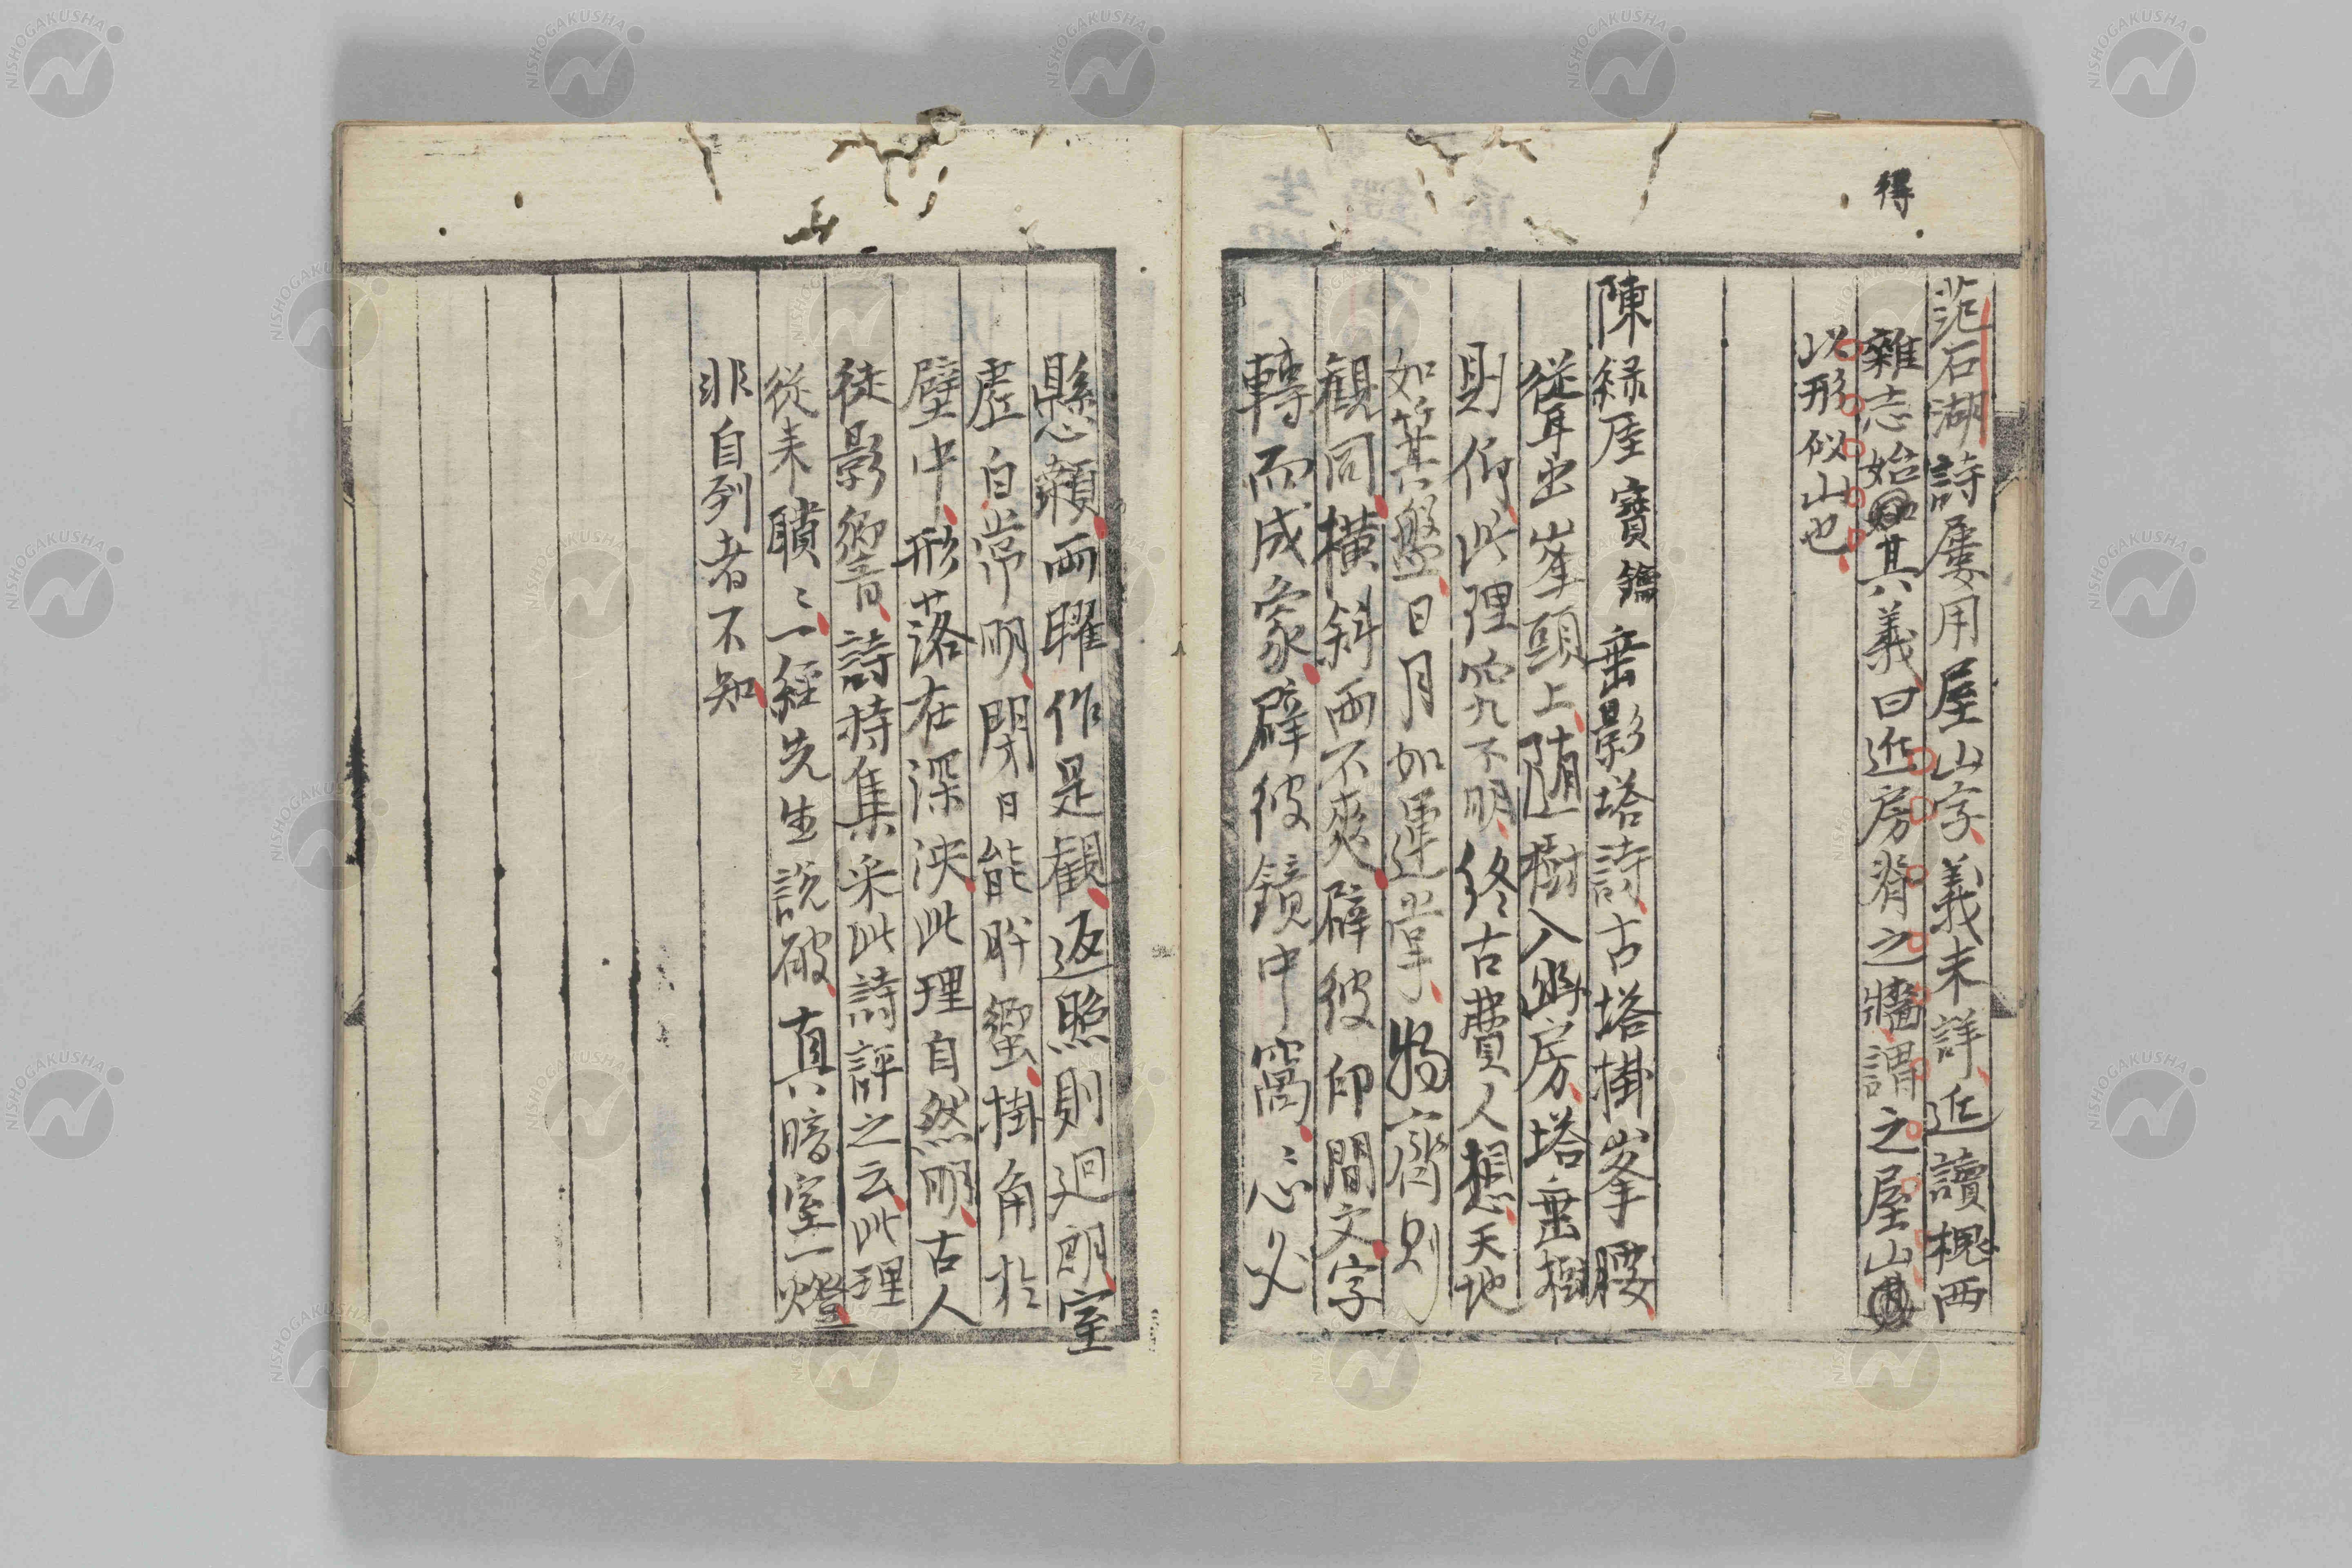 得
范石湖詩屢用屋山字義未詳近讀槐西
雜志始其義曰近房脊之牆謂之屋山
以形似山也
陳緑厓寶鑰垂影塔詩古塔掛峯腰
從耳出峯頭上隨樹入幽房塔垂樹
則何此理究不明終古費人想天地
如箕盤日月如運掌物齊則
觀同橫斜而不爽辟彼印間文字
轉而成象辟彼鏡中窩心必
懸額而曜作是觀返照則迴朗室
虛自常明閉日能肸蠁掛角於
壁中形落在深泱此理自然明古人
徒影響詩持集采此詩評之云此理
從未聵〻一經先生說破真暗室一燈
非自列者不知
NISHOGAKUSHA